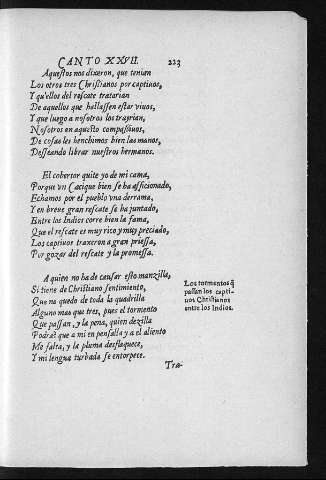 CANTO XXVII. 223
Aquestos nos dixeron, que tenian
Los otros tres Christianos por captiuos,
Y qu'ellos del rescate tratarian
De aquellos que hallassen estar viuos,
Y que luego a nosotros los trayrian,
Nosotros en aquesto compassiuos,
De cosas les henchimos bien las manos,
Desseando librar nuestros hermanos.
El cobertor quite yo de mi cama,
Porque vn Cacique bien se ha afficionado,
Echamos por el pueblo vna derrama,
Y en breue gran rescate se ha juntado,
Entre los Indios corre bien la fama,
Que el rescate es muy rico y muy preciado,
Los captiuos traxeron a gran priessa,
Por gozar del rescate y la promessa.
A quien no ha de causar esto manzilla,
Si tiene de Christiano sentimiento,
Que no quedo de toda la quadrilla
Alguno mas que tres, pues el tormento
Que passan, y la pena, quien dezilla
Podrà? que a mi en pensalla y a el aliento
Me falta, y la pluma desflaquece,
Y mi lengua turbada se entorpece.
Los tormentos q̃
passan los capti-
uos Christianos
entre los Indios.
Tra-